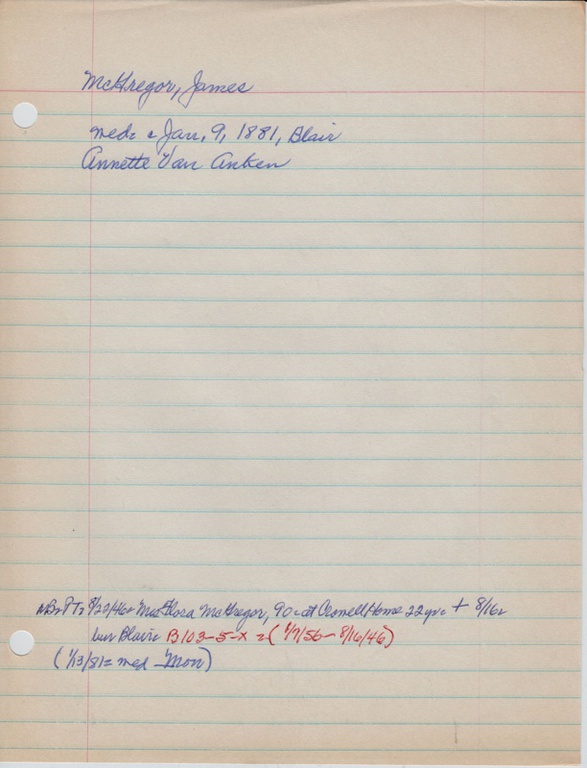 McGregor, James
med: c Jan, 9, 1881, Blair
Annette Van Anken
8/20/46: Mrs Flora McGregor, 90 c at Crowell Home 22 yrs + 8/16
bur Blair: B103-5-X = (1/7/56 - 8/16/46)
(1/13/81 = med - Mon)